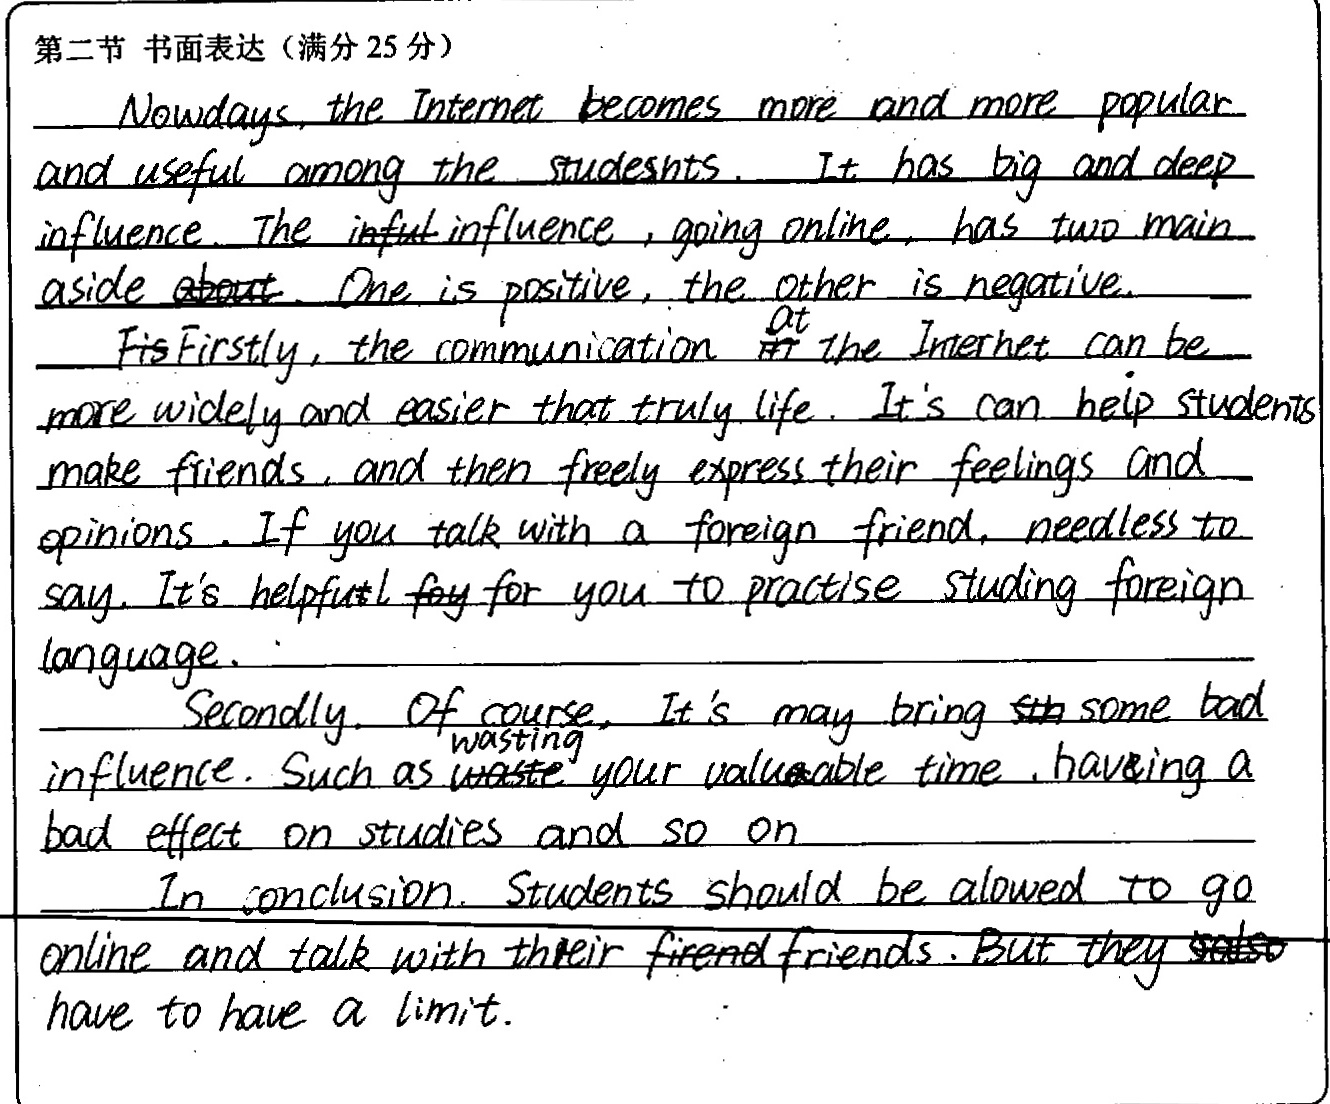 第二节 书面表达（满分 25 分）
Nowdays, the Internet becomes more and more popular
and useful among the studesnts. It has big and deep
influence. The influence, going online, has two main
aside. One is positive, the other is negative.
Firstly, the communication at the Internet can be
more widely and easier that truly life. It's can help students
make friends, and then freely express their feelings and
opinions. If you talk with a foreign friend, needless to
say. It's helpful for you to practise studing foreign
language.
Secondly. Of course, It's may bring some bad
influence. Such as wasting your valuable time, having a
bad effect on studies and so on
In conclusion. Students should be alowed to go
online and talk with their friends. But they
have to have a limit.